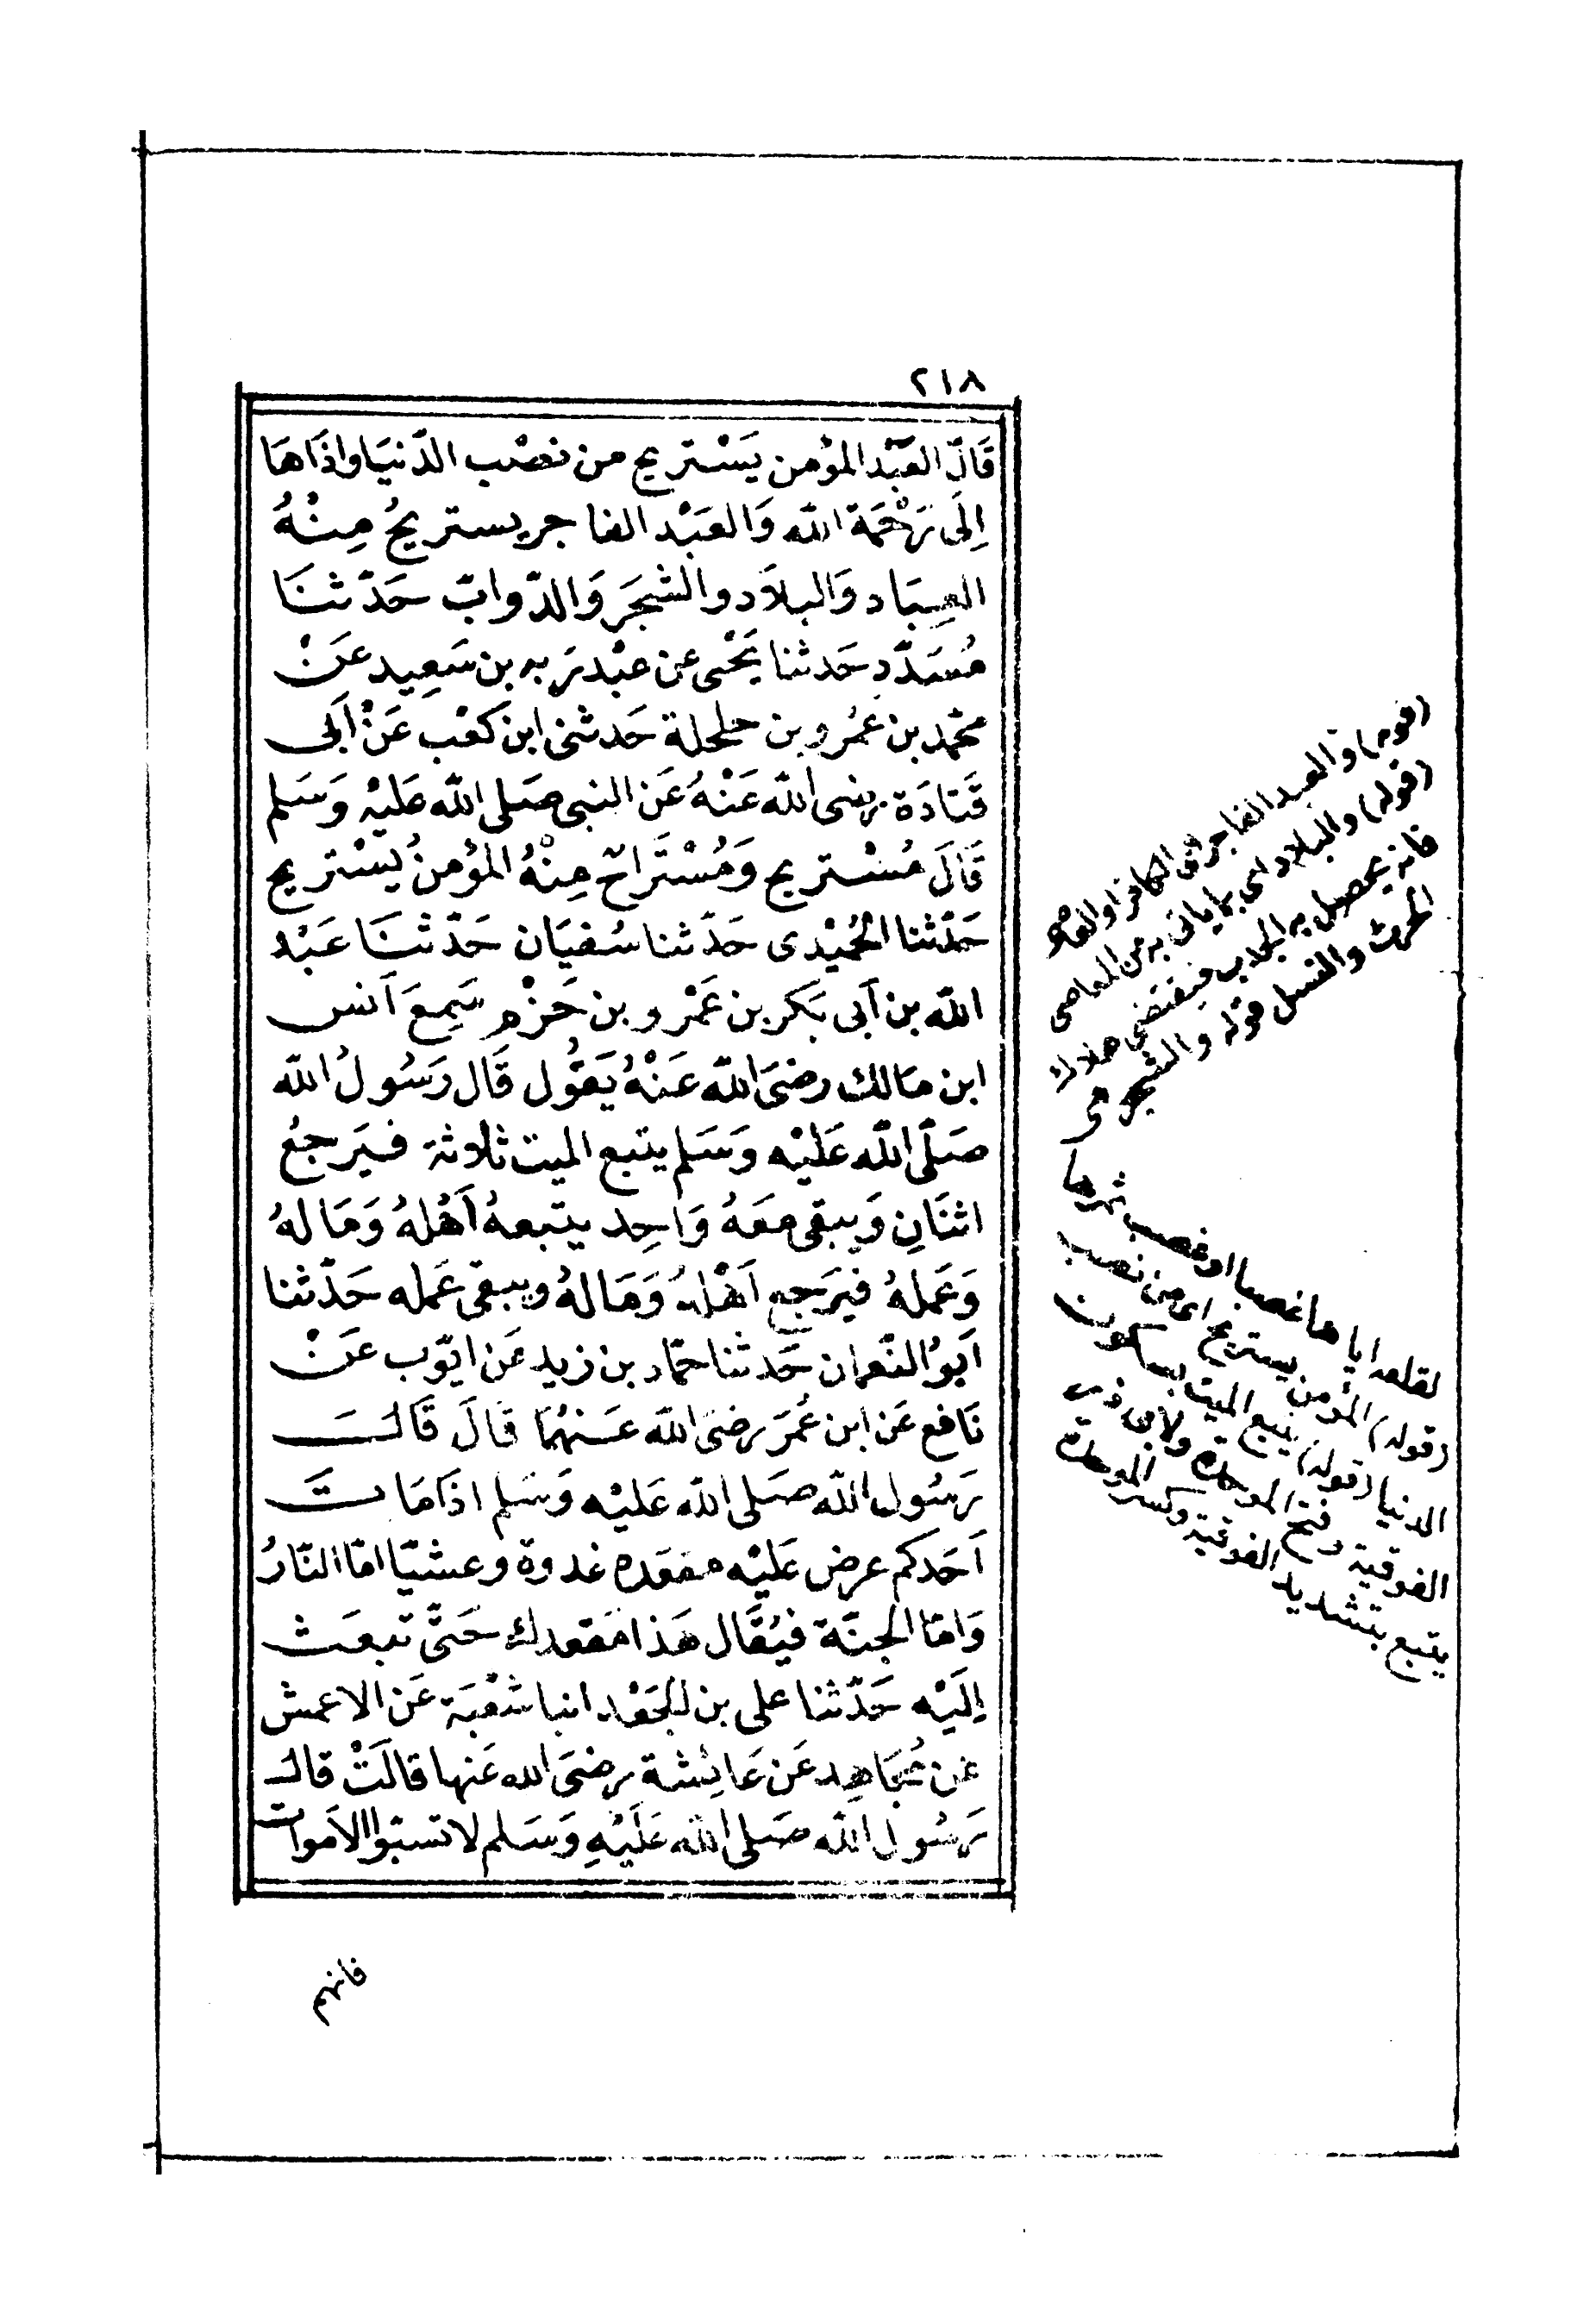 ٢١٨
قَالَ العَبْد المؤمن يَسْتريح من نصْب الدّنيَا واذَاهَا
اِلَى رَحْمَة الله وَالعَبْد الفاجر يستريحُ مِنْهُ
العِبَاد وَالبلَاد والشجَر وَالدّوابّ حَدّثنَا
مُسَدّد حَدثنا يَحْيى عن عبْد ربه بن سَعِيد عَنْ
محمّد بن عَمْرو بن حلحلة حَدثنى ابن كَعْب عَنْ أَبى
قَتادَة رضى الله عَنْهُ عَن النبى صَلى الله عَليْه وَسَلم
قَالَ مُسْتريح وَمُسْتَراحٌ مِنْهُ المؤمنُ يَسْتريح
حَدّثنا الحُمَيْدى حَدّثنا سُفيَان حَدّثنَا عَبْد
الله بن اَبى بَكر بن عَمْرو بن حَزْم سَمِعَ اَنس
ابن مَالك رضىَ الله عَنْهُ يَقُول قَال رَسُولُ الله
صَلّى الله عَليْه وَسَلم يتبع الميت ثلاثة فيَرجعُ
اثنَانِ وَيبقى مَعَهُ وَاحِد يتبعهُ اَهْلهُ وَمَالهُ
وَعَملهُ فيَرَجع اَهْلهُ وَمَالهُ ويبقى عَمله حَدّثنا
اَبوُ النّعمان حَدثنا حمّاد بن زيد عَن ايّوب عَنْ
نَافع عَن ابن عُمَر رضىَ الله عَنهُمَا قَالَ قَالَ
رَسُول الله صَلى الله عَليْه وَسَلم اذَا مَاتَ
اَحَدكم عرض عَليْه مقعَده غدوة وعشيّا امّا النّارُ
وَامّا الجنّة فيُقَال هَذا مَقعدك حَتَّى تبعَث
اِلَيْه حَدّثنا على بن الجَعْد انبا شعْبَة عَن الاعمش
عَن مُجَاهِد عَن عَائِشة رضىَ الله عَنها قالَتْ قال
رَسُول الله صَلى الله عَلَيْهِ وَسَلم لا تسبّوا الاَموات
فانهم
(قوله) والعبد الفاجر اى الكافر او العاصى
(قوله) والبلاد اى بما ياتى به من المعاصى
فانه يحصل به الجدب فيقتضى هلاك
الحرث والنسل قوله والشجر
لقلعه اياها غصبا او غصب ثمرها
(قوله) المؤمن يستريح اى من نصب
الدنيا (قوله) يتبع الميت بسكون
الفوقية وفتح الموحدة ولابى ذر
يتبع بتشديد الفوقية وكسر الموحدة